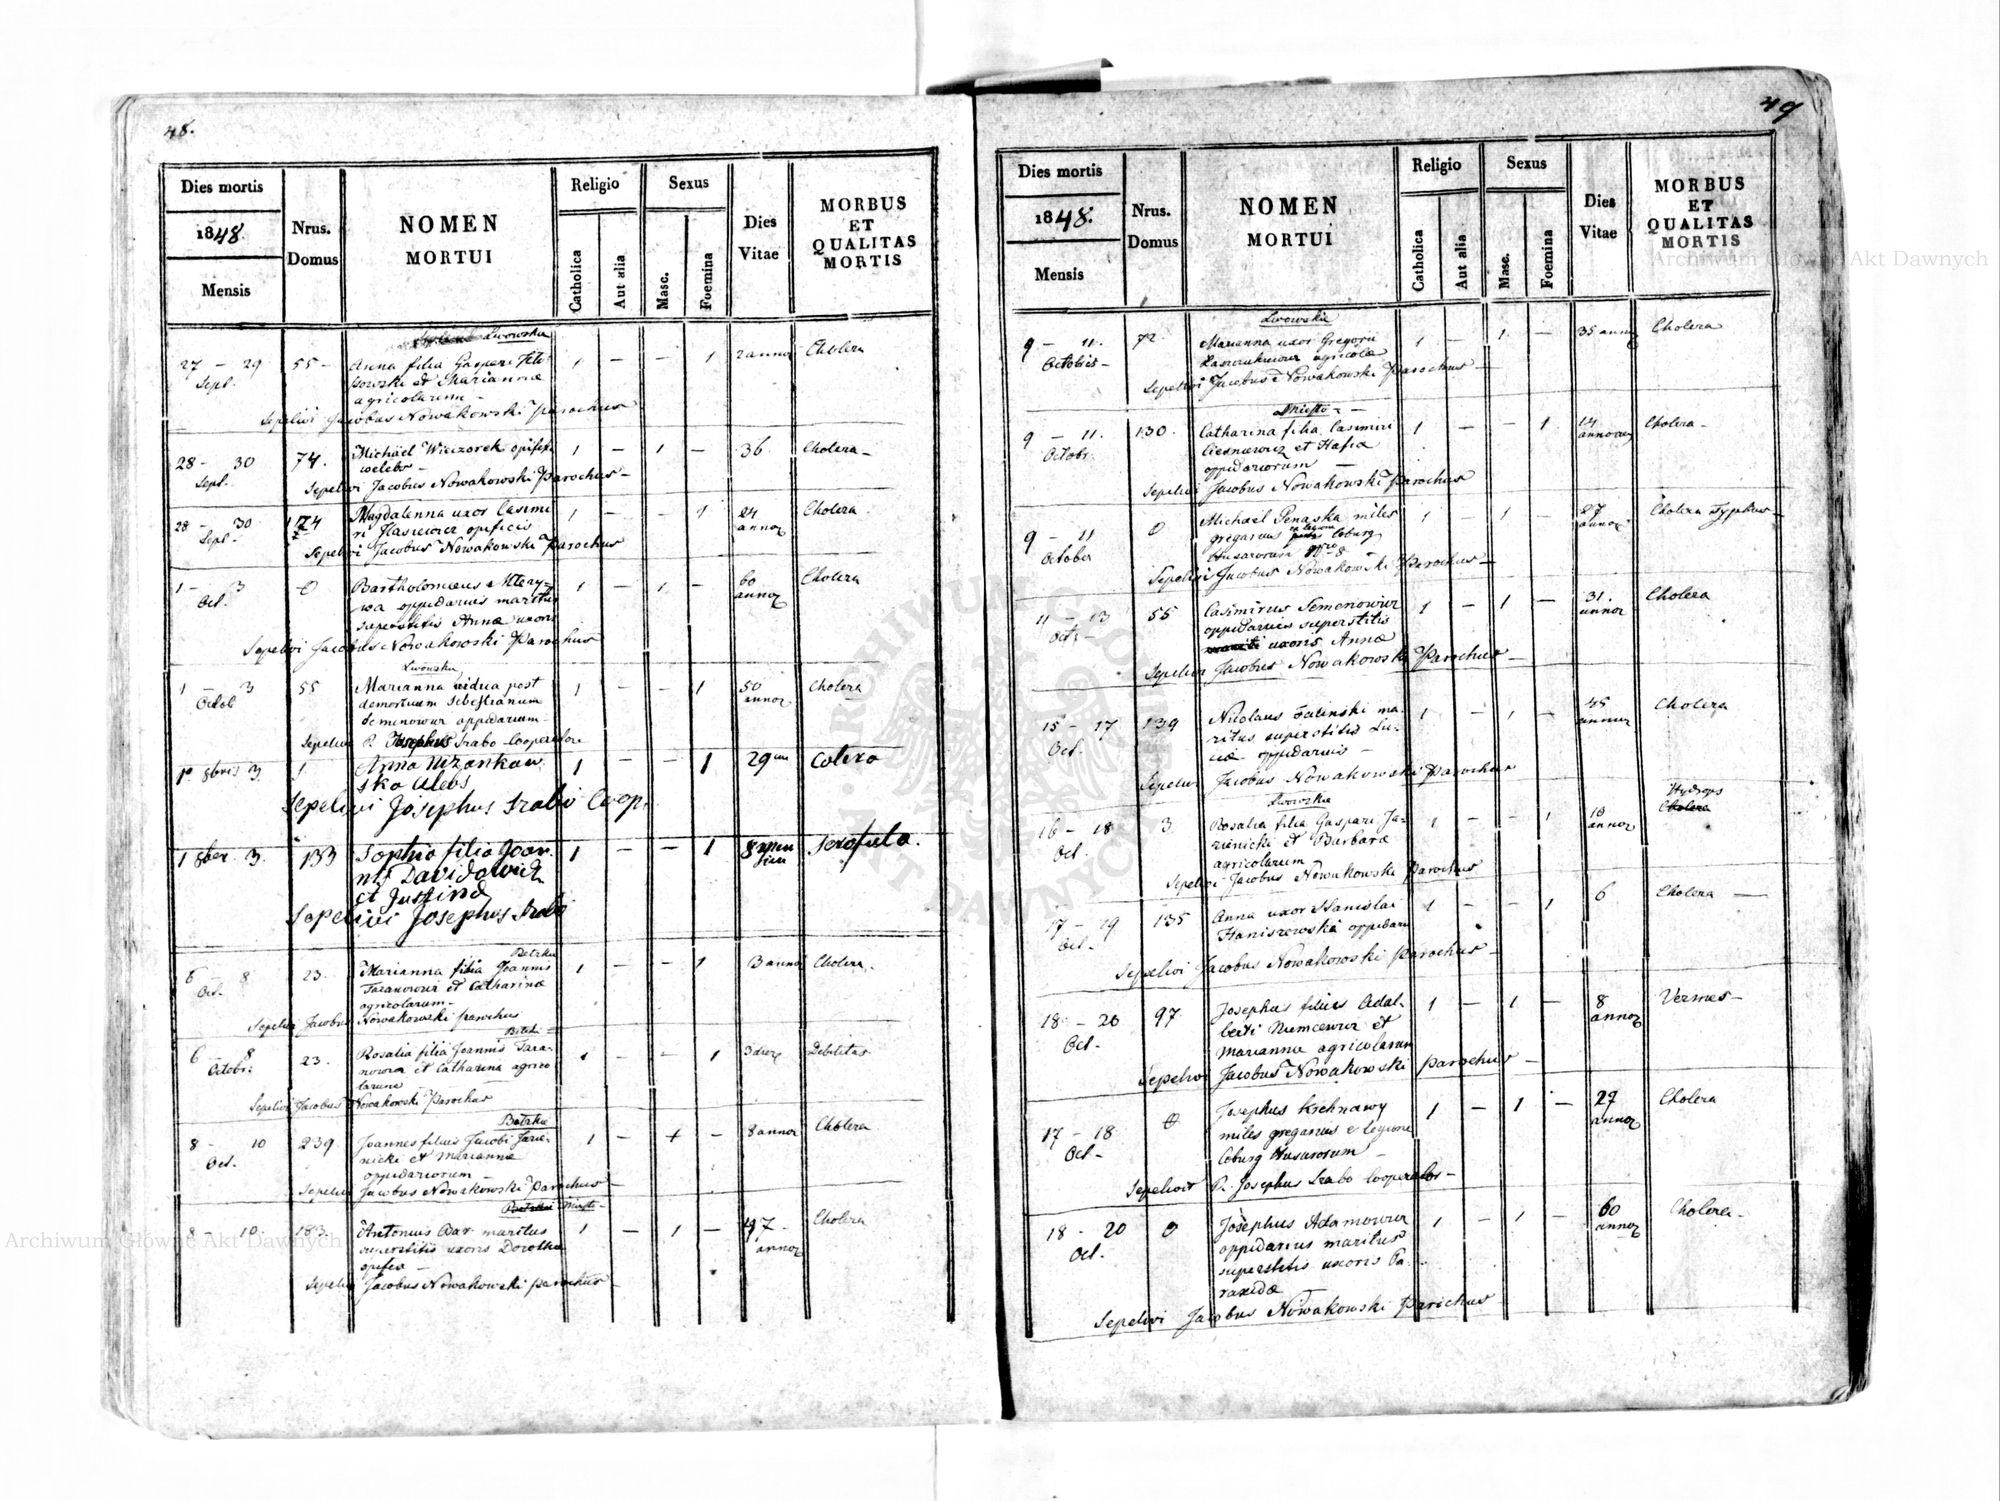 48.
Dies mortis
1848.
Mensis
Nrus. Domus
NOMEN
MORTUI
Religio
Catholica
Aut alia
Sexus
Masc.
Foemina
Dies
Vitae
MORBUS
ET
QUALITAS
MORTIS
Lwowska
27 - 29 55 - Anna filia Gaspari 1 - - 1 2 annor Cholera
Sept. et Mariannæ
agricolarum -
Sepelivi Jacobus Nowakowski Parochus
28 - 30 74. Michael Wieczorek opifex 1 - 1 - 36. Cholera -
Sept. celebs -
Sepelivi Jacobus Nowakowski Parochus -
28 - 30 Magdalenna uxor Casimi 1 - - 1 24 Cholera.
Sept. ri opificis annor
Sepelivi Jacobus Nowakowski Parochus
1 - 3 0 Bartholomæus 1 - 1 - 60 Cholera
Oct. oppidarius maritus annor
superstitis Annæ uxoris
Sepelivi Jacobus Nowakowski Parochus
Lwowska
1 - 3 55 Marianna vidua post 1 - - 1 50 Cholera
Octob demortuum Sebestianum annor
Semenowicz oppidarium -
Sepelivi P. Josephus Szabo Cooperator
1a 8bris 3 1 Anna 1 - - 1 29 Colera
ska
Sepelivi Josephus Szabo Coop.
1 8ber. 3. 133 Sophia filia Joan 1 - - 1 8 men Scrofula.
nis Davidowicz sium
et Justina
Sepelivi Josephus Szabo
6 - 8 23. Marianna filia Joannis 1 - - 1 3 annor Cholera.
Oct. Taranowicz et Catharinæ
agricolarum -
Sepelivi Jacobus Nowakowski parochus
6 - 8 23. Rosalia filia Joannis Tara- 1 - - 1 3 dier Debilitas
Octobr: nowicz et Catharina agrico
larum
Sepelivi Jacobus Nowakowski Parochus
8 - 10 239. Joannes filius Jacobi Jarze- 1 - 1 - 8 annor Cholera
Oct. nicki et Mariannæ
oppidariorum
Sepelivi Jacobus Nowakowski Parochus -
Miasto -
8 - 10. 183. Antonius maritus 1 - 1 - 47 - Cholera
superstitis uxoris Dorothea annor
opifex -
Sepelivi Jacobus Nowakowski parochus
49
Dies mortis
1848.
Mensis
Nrus.
Domus
NOMEN
MORTUI
Religio
Catholica
Aut alia
Sexus
Masc.
Foemina
Dies
Vitae
MORBUS
ET
QUALITAS
MORTIS
Lwowska
9 - 11. 72. Marianna uxor Gregorii 1 - 1. - 35 annor Cholera
Octobris - agricolæ
Sepelivi Jacobus Nowakowski Parochus -
Miasto -
9 - 11. 130. Catharina filia Casimiri 1 - - 1 14 Cholera -
Octobr. et annorum
oppidariorum -
Sepelivi Jacobus Nowakowski Parochus
9 - 11 0 Michael Penaska miles 1 - 1 - 27 Cholera Typhus -
October gregarius e legione Coburg annor
Husarorum Nro 8
Sepelivi Jacobus Nowakowski Parochus -
11 - 13 55 Casimirus Semenowicz 1 - 1 - 31. Cholera
Oct. - oppidarius superstitis annor
uxoris Annæ
Sepelivi Jacobus Nowakowski Parochus -
15 - 17 139 Nicolaus ma- 1 - 1 - 45 Cholera
Oct. ritus superstitis Lu- annor
ciæ oppidarius -
Sepelivi Jacobus Nowakowski Parochus
Lwowska
16 - 18 3. Rosalia filia Gaspari Ja- 1 - - 1 10 Hydrops
Oct. rzenicki et Barbaræ annor Cholera
agricolarum
Sepelivi Jacobus Nowakowski Parochus
17 - 19 135 Anna uxor Stanislai 1 - - 1 6 Cholera -
Oct. Haniszewski oppidarii
Sepelivi Jacobus Nowakowski Parochus -
18 - 20 97 Josephus filius Adal- 1 - 1 - 8 Vermes -
Oct. berti Niemcewicz et annor
Mariannæ agricolarum
Sepelivi Jacobus Nowakowski Parochus -
17 - 18 0 Josephus Krchnawy 1 - 1 - 27 Cholera
Oct. miles gregarius e legione annor
Coburg Husarorum -
Sepelivit P. Josephus Szabo Cooperator -
18 - 20 0 Josephus Adamowicz 1 - 1 - 60 Cholera -
Oct. oppidarius maritus annor
superstitis uxoris Pa-
raxidæ
Sepelivi Jacobus Nowakowski Parochus
Archiwum Główne Akt Dawnych
Archiwum Główne Akt Dawnych